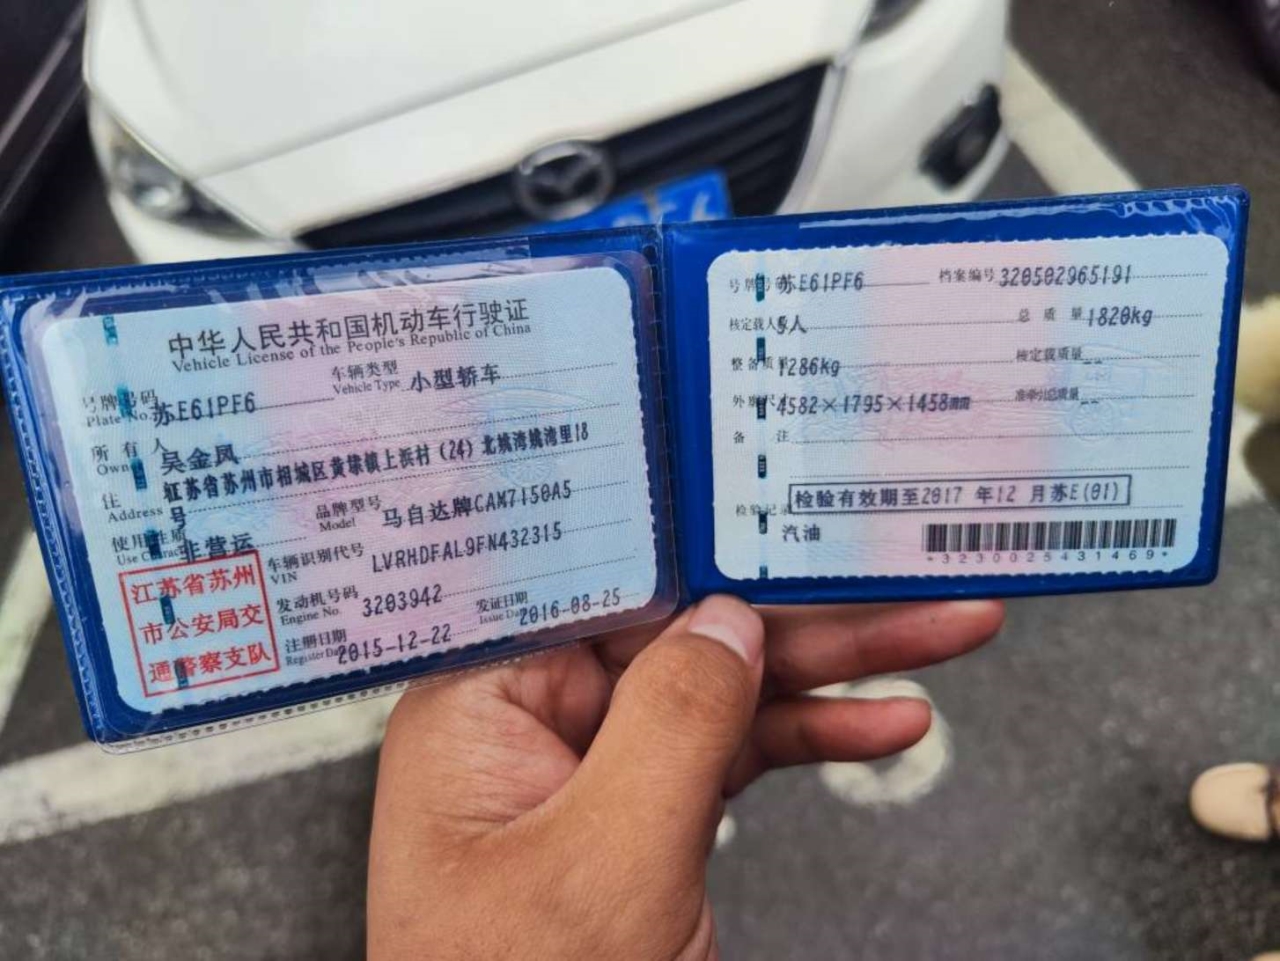 中华人民共和国机动车行驶证
Vehicle License of the People's Republic of China
号牌号码 Plate No. 苏E61PF6 车辆类型 Vehicle Type 小型轿车
所有人 Owner 吴金凤
住址 Address 江苏省苏州市相城区黄埭镇上浜村(24)北姚湾姚湾里18
号
使用性质 Use Character 非营运 品牌型号 Model 马自达牌CAM7150A5
车辆识别代号 VIN LVRHDFAL9FN432315
发动机号码 Engine No. 3203942
注册日期 Register Date 2015-12-22 发证日期 Issue Date 2016-08-25
江苏省苏州
市公安局交
通警察支队
号牌号码 苏E61PF6 档案编号 320502965191
核定载人数 5人 总质量 1820kg
整备质量 1286kg 核定载质量 --
外廓尺寸 4582×1795×1458mm 准牵引总质量 --
备注
检验记录 检验有效期至2017 年12 月苏E(01)
汽油
*3230025431469*